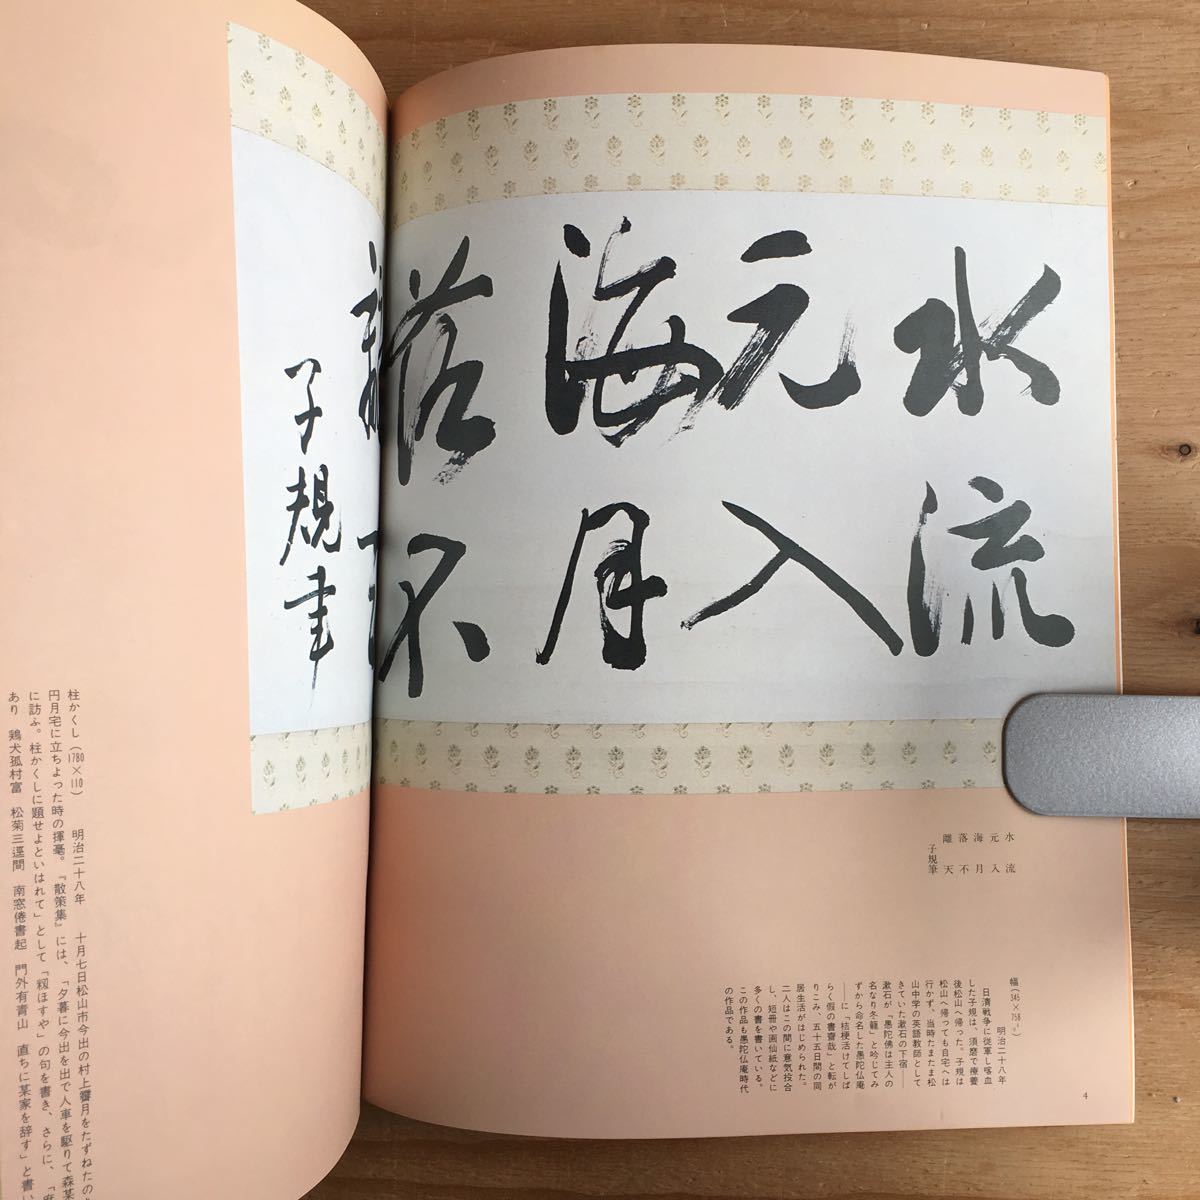 水流
元入
海月
落不
離
子規筆
水流
元入
海月
落不
離天
子規筆
幅(345×758㍉) 明治二十八年
日清戦争に従軍し喀血
した子規は、須磨で療養
後松山へ帰った。子規は
松山へ帰っても自宅へは
行かず、当時たまたま松
山中学の英語教師として
きていた漱石の下宿――
漱石が「愚陀佛は主人の
名なり冬籠」と吟じてみ
ずから命名した愚陀仏庵
――に「桔梗活けてしば
らく假の書齋哉」と転が
りこみ、五十五日間の同
居生活がはじめられた。
二人はこの間に意気投合
し、短冊や画仙紙などに
多くの書を書いている。
この作品も愚陀仏庵時代
の作品である。
4
柱かくし(1780×110) 明治二十八年 十月七日松山市今出の村上霽月をたずねた
円月宅に立ちよった時の揮毫。『散策集』には、「夕暮に今出を出で人車を駆りて森某
に訪ふ。柱かくしに題せよといはれて」として「籾ほすや」の句を書き、さらに、
あり 鶏犬孤村富 松菊三逕間 南窓倦書起 門外有青山 直ちに某家を辞す」と書い